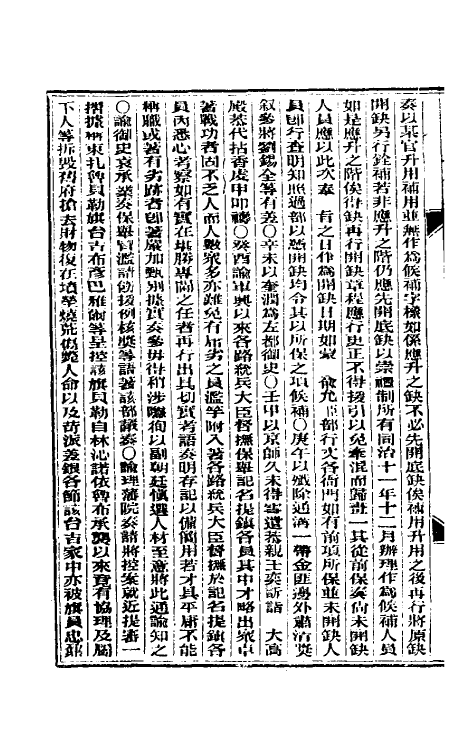 奏以某官升用補用並無作為候補字樣如係應升之缺不必先開底缺俟補用升用之後再行將原缺
開缺另行銓補若非應升之階仍應先開底缺以崇體制所有同治十一年十二月辦理作為候補人員
如是應升之階俟得缺再行開缺章程應行更正不得援引以免牽混而歸畫一其從前保奏尚未開缺
人員應以此次奏 旨之日作為開缺日期如蒙 俞允臣部行文各衙門如有前項所保並未開缺人
員即行查明知照過部以憑開缺均令其以所保之項候補〇庚午以殲除通溝一帶金匪邊外肅清獎
敘參將劉錫全等有差〇辛未以奎潤為左都御史〇壬申以京師久未得雪遣恭親王奕訢詣 大高
殿恭代拈香虔申叩禱〇癸酉諭軍興以來各路統兵大臣督撫保舉記名提鎮各員其中才略出眾卓
著戰功者固不乏人而人數眾多亦難免有庸劣之員濫竽附入著各路統兵大臣督撫於記名提鎮各
員內悉心考察如有實在堪勝專閫之任者再行出具切實考語奏明存記以備簡用若才具平庸不能
稱職或著有劣跡者即著嚴加甄別據實奏參毋得稍涉瞻徇以副朝廷慎選人材至意將此通諭知之
〇諭御史袁承業奏保舉冒濫請飭援例核獎等語著該部議奏〇諭理藩院奏請將控案就近提審一
摺據稱東扎魯貝勒旗台吉布彥巴雅爾等呈控該旗貝勒自林沁諾依魯布承襲以來竟有協理及屬
下人等拆毀舊府搶去財物復在墳塋燒荒傷斃人命以及苛派差銀各節該台吉家中亦被旗員忠鼐